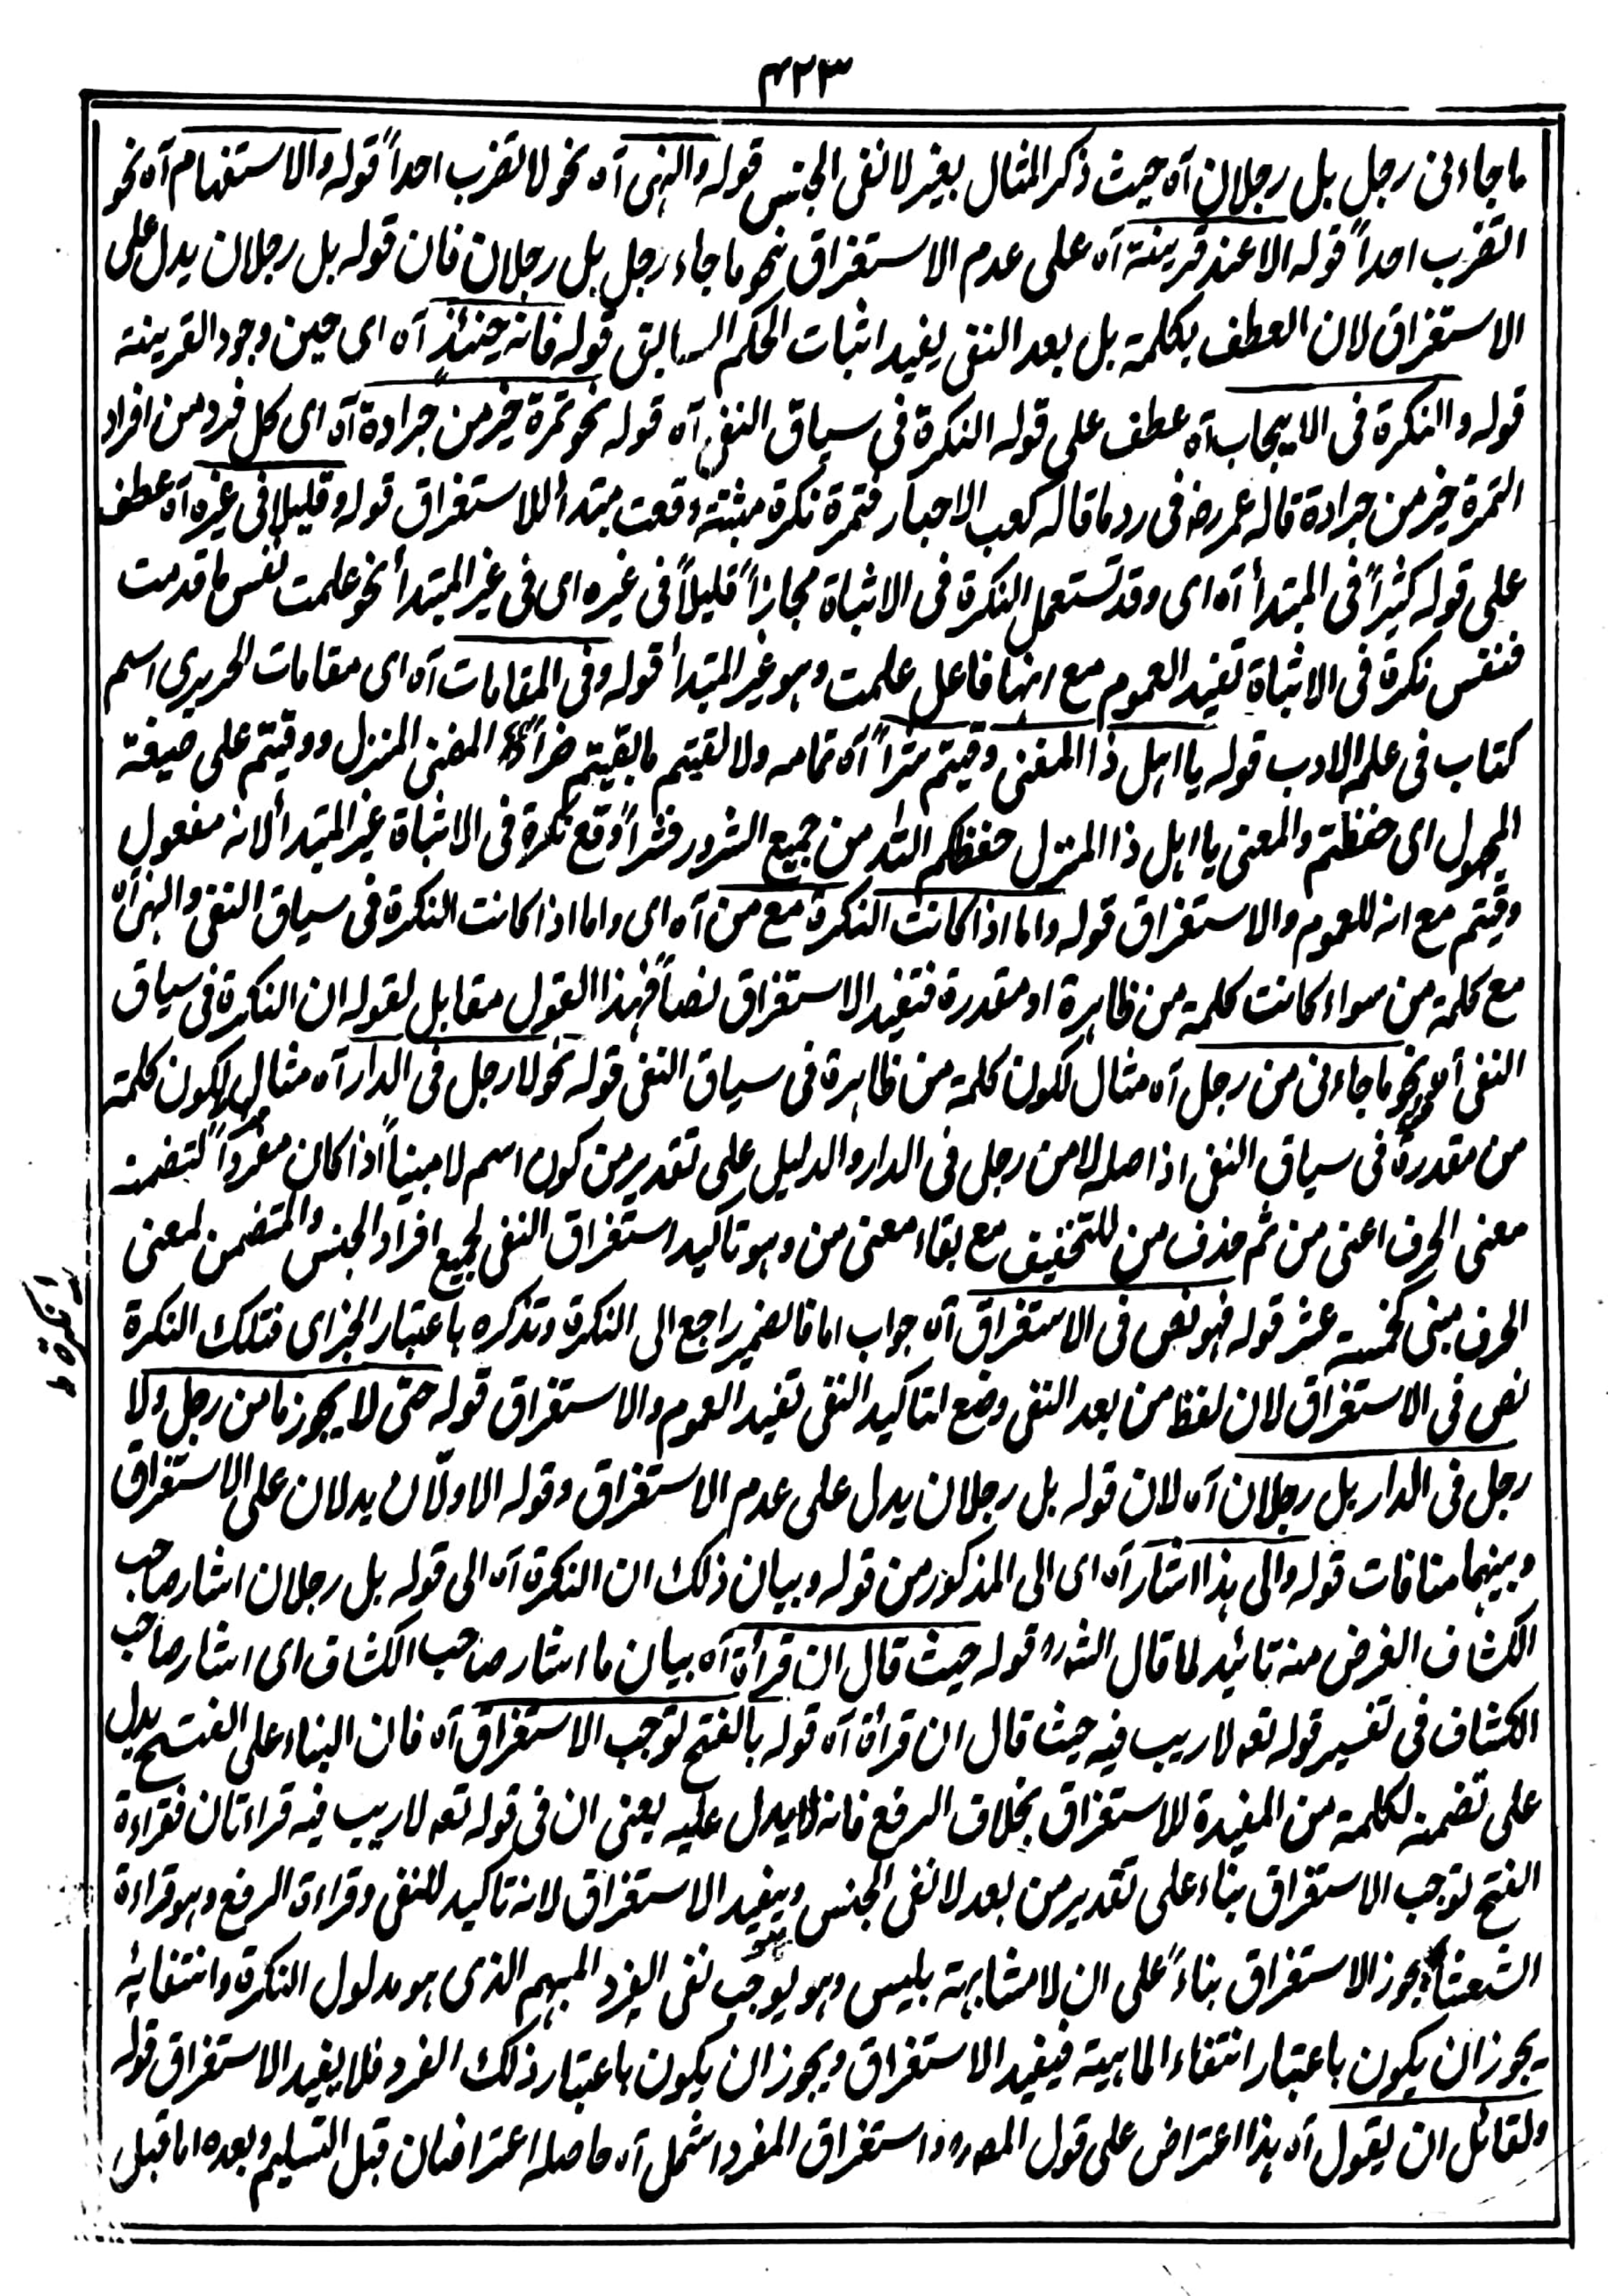 ٤٢٣
ما جاءنی رجل بل رجلان آہ حیث ذکر المثال بغیر لا نفی الجنس قولہ والنہی آہ نحو لا تضرب احداً قولہ والاستفہام آہ نحو
اتضرب احداً قولہ الا عند قرینۃ آہ علی عدم الاستغراق نحو ما جاء رجل بل رجلان فان قولہ بل رجلان یدل علی
الاستغراق لان العطف بکلمۃ بل بعد النفی یفید اثبات الحکم السابق قولہ فانہ حینئذٍ آہ ای حین وجود القرینۃ
قولہ والنکرۃ فی الایجاب آہ عطف علی قولہ النکرۃ فی سیاق النفی آہ قولہ نحو تمرۃ خیر من جرادۃ آہ ای کل فرد من افراد
التمرۃ خیر من جرادۃ قالہ عمر رضہ فی رد ما قالہ کعب الاحبار فتمرۃ نکرۃ مثبتۃ وقعت مبتدأ للاستغراق قولہ وقلیلا فی غیرہ آہ عطف
علی قولہ کثیراً فی المبتدأ آہ ای وقد تستعمل النکرۃ فی الاثباۃ مجازاً قلیلاً فی غیرہ ای فی غیر المبتدأ نحو علمت نفس ما قدمت
فنفس نکرۃ فی الاثباۃ تفید العموم مع انہا فاعل علمت وہو غیر المبتدأ قولہ وفی المقامات آہ ای مقامات الحریری اسم
کتاب فی علم الادب قولہ یا اہل ذا المغنی وقیتم شراً آہ تمامہ ولا لقیتم ما بقیتم ضراً المغنی المنزل ووقیتم علی صیغۃ
المجہول ای حفظتم والمعنی یا اہل ذا المنزل حفظکم اللہ من جمیع الشرور فشراً وقع نکرۃ فی الاثباۃ غیر المبتدأ لانہ مفعول
وقیتم مع انہ للعموم والاستغراق قولہ واما اذا کانت النکرۃ مع من آہ ای واما اذا کانت النکرۃ فی سیاق النفی والنہی آہ
مع کلمۃ من سواء کانت کلمۃ من ظاہرۃ او مقدرۃ فتفید الاستغراق نصاً فہذا القول مقابل لقولہ ان النکرۃ فی سیاق
النفی آہ نحو ما جاءنی من رجل آہ مثال لکون کلمۃ من ظاہرۃ فی سیاق النفی قولہ نحو لا رجل فی الدار آہ مثال لکون کلمۃ
من مقدرۃ فی سیاق النفی اذ اصلہ لا من رجل فی الدار والدلیل علی تقدیر من کون اسم لا مبنیاً اذا کان مفرداً لتضمنہ
معنی الحرف اعنی من ثم حذف من للتخفیف مع بقاء معنی من وہو تاکید استغراق النفی لجمیع افراد الجنس والمتضمن لمعنی
الحرف مبنی کخمسۃ عشر قولہ فہو نص فی الاستغراق آہ جواب اما فالضمیر راجع الی النکرۃ وتذکرہ باعتبار الخبر ای فتلک النکرۃ
نص فی الاستغراق لان لفظ من بعد النفی وضع لتاکید النفی تفید العموم والاستغراق قولہ حتی لا یجوز ما من رجل ولا
رجل فی الدار بل رجلان آہ لان قولہ بل رجلان یدل علی عدم الاستغراق وقولہ الاولان یدلان علی الاستغراق
وبینہما منافات قولہ والی ہذا اشار آہ ای الی المذکور من قولہ وبیان ذلک ان النکرۃ آہ الی قولہ بل رجلان اشار صاحب
الکشاف الغرض منہ تائید لما قال الشہ رہ قولہ حیث قال ان قرأۃ آہ بیان ما اشار صاحب الکشاف ای اشار صاحب
الکشاف فی تفسیر قولہ تعہ لا ریب فیہ حیث قال ان قرأۃ آہ قولہ بالفتح توجب الاستغراق آہ فان البناء علی الفتح یدل
علی تضمنہ لکلمۃ من المفیدۃ للاستغراق بخلاف الرفع فانہ لا یدل علیہ یعنی ان فی قولہ تعہ لا ریب فیہ قراءتان فقراءۃ
الفتح توجب الاستغراق بناء علی تقدیر من بعد لا نفی الجنس ویفید الاستغراق لانہ تاکید للنفی وقراءۃ الرفع وہو قراءۃ
الشعثاء یجوز الاستغراق بناءً علی ان لا مشابہۃ بلیس وہو یوجب نفی الفرد المبہم الذی ہو مدلول النکرۃ وانتفائہ
یجوز ان یکون باعتبار انتفاء الماہیۃ فیفید الاستغراق ویجوز ان یکون باعتبار ذلک الفرد فلا یفید الاستغراق قولہ
ولقائل ان یقول آہ ہذا اعتراض علی قول المصہ رہ واستغراق المفرد اشمل آہ حاصلہ اعتراضان قبل التسلیم وبعدہ اما قبل